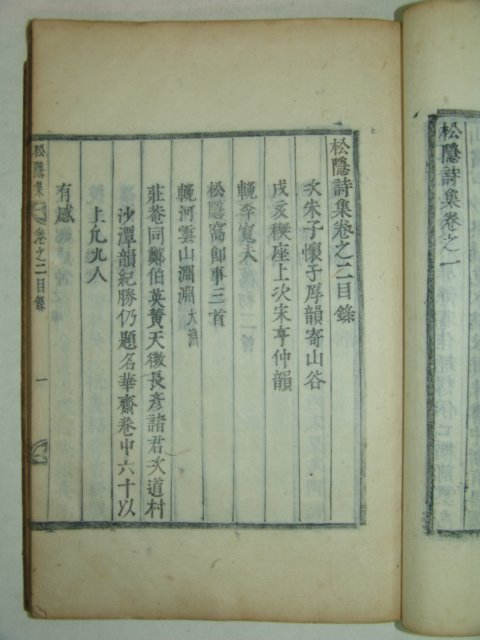 松隱詩集卷之一
松隱詩集卷之二目錄
次朱子懷子厚韻寄山谷
戊亥稧座上次宋亨仲韻
輓李寬夫
松隱窩卽事三首
輓河雲山淵淵大淵
莊菴同鄭伯英黃天徵長彥諸君次道村
沙潭韻紀勝仍題名華齋卷中六十以
上凡九人
有感
松隱集 卷之二目錄 一